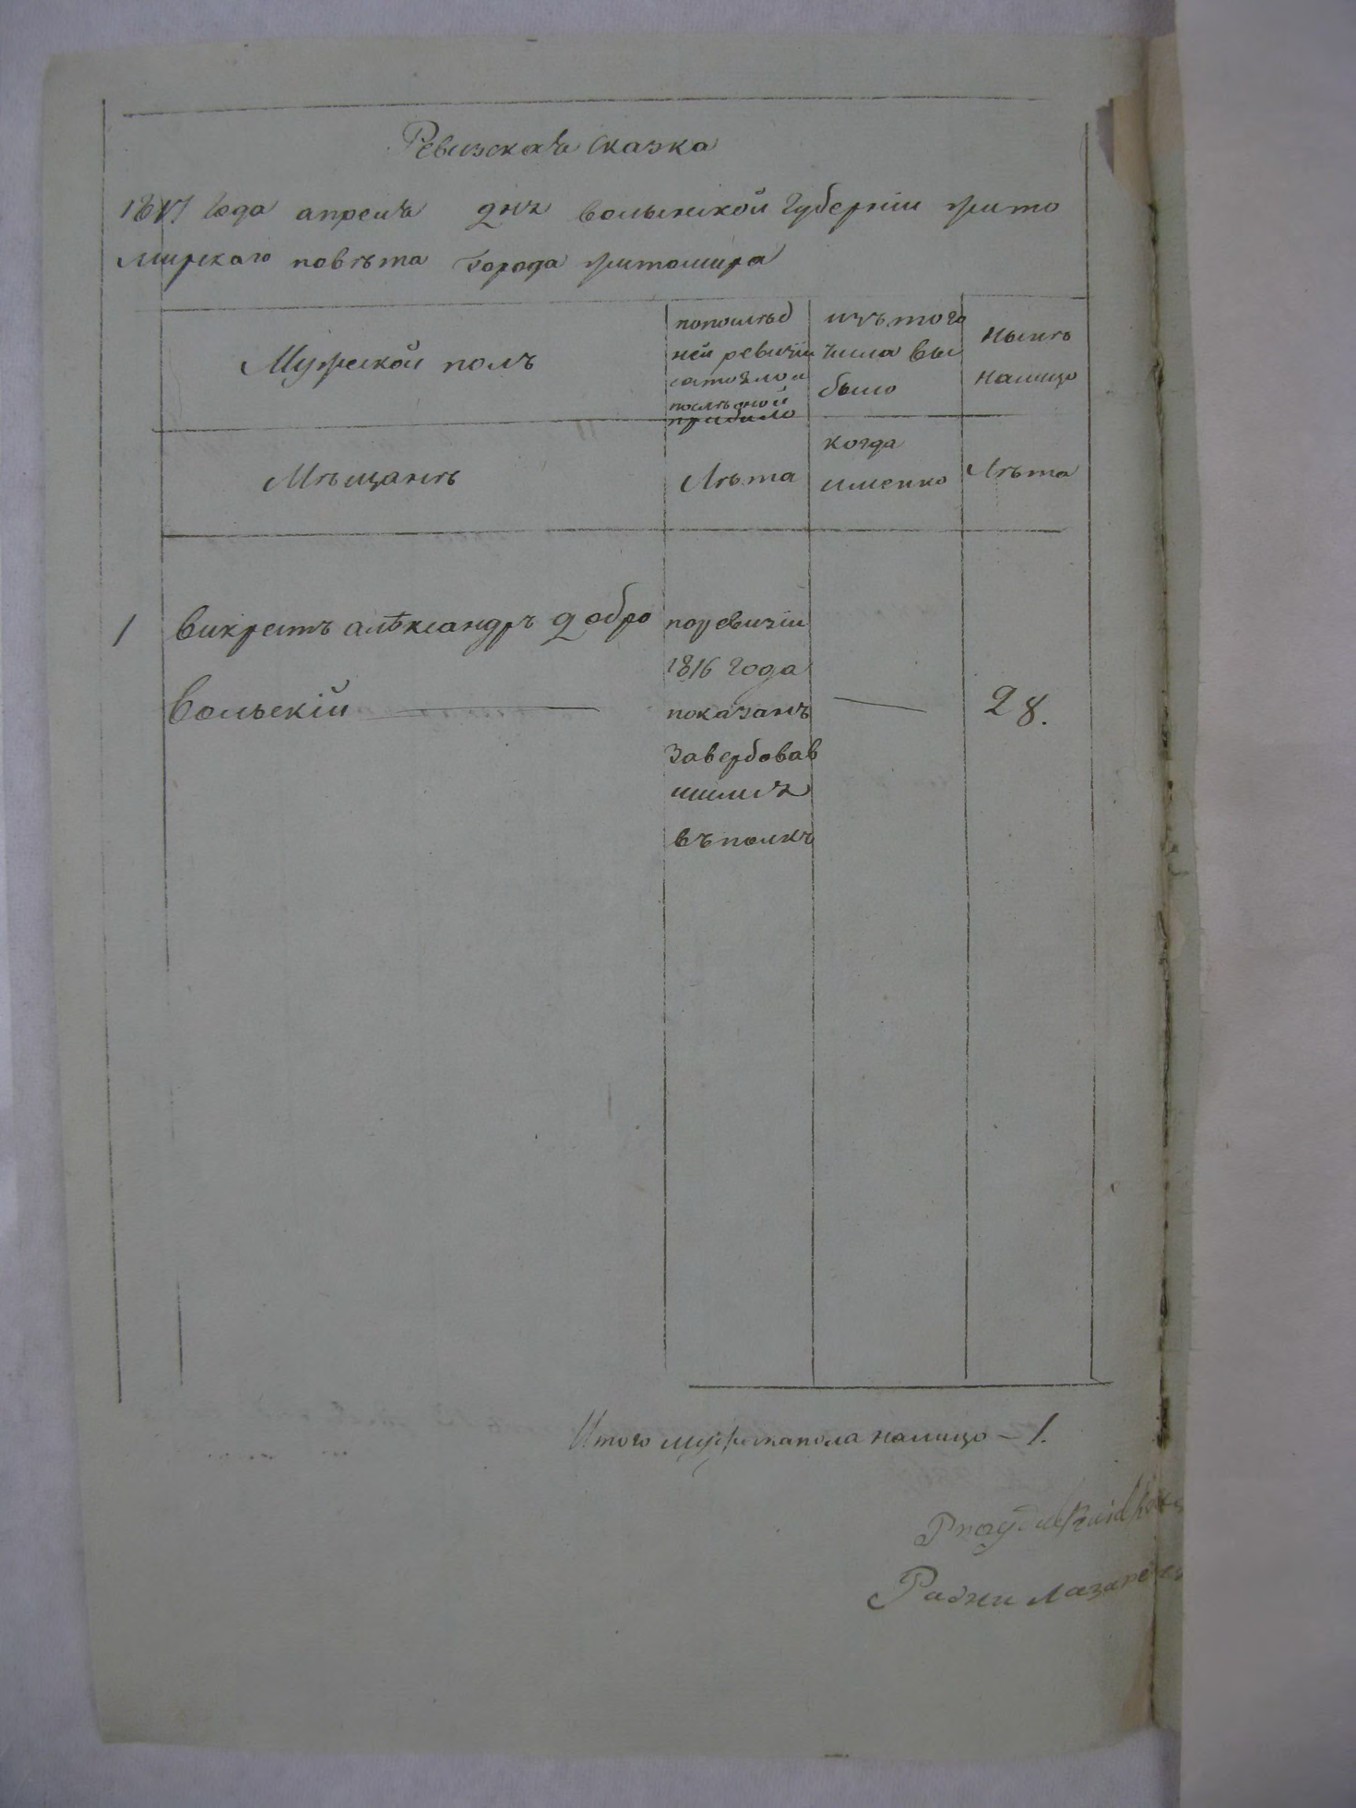 Ревизская сказка
1817 года апреля дня волынской губернии жито
мирскаго повѣта города житомира
Мужеской полъ
попослѣд
ней ревизіи
состояло и
послѣ оной
прибыло
изъ того
числа вы
было
нынѣ
налицо
Мѣщанѣ
Лѣта
когда
именно
Лѣта
1 викрестъ алѣксандръ добро
вольскій
поревизіи
1816 года
показанъ
завербовав
шимся
въ полкъ
28.
Итого мужска пола налицо — 1.
Радни